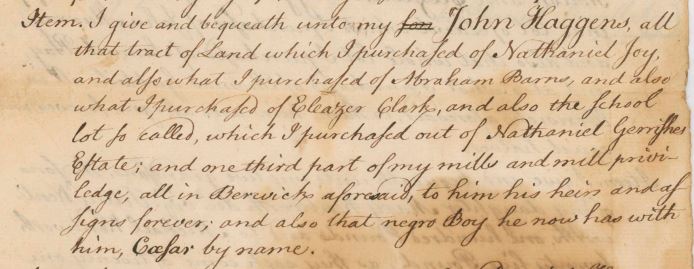 Item. I give and bequeath unto my son John Haggens, all
that tract of Land which I purchased of Nathaniel Joy,
and also what I purchased of Abraham Barns, and also
what I purchased of Eleazer Clark, and also the school
lot so called, which I purchased out of Nathaniel Gerrishes
Estate; and one third part of my mills and mill privi-
ledge, all in Berwick aforesaid, to him his heirs and as
signs forever; and also that negro Boy he now has with
him, Cæsar by name.